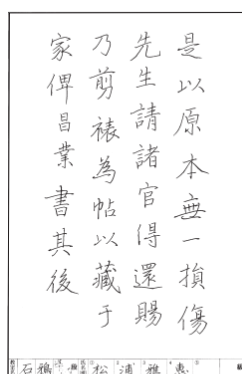 是以原本無一損傷
先生請諸官得還賜
乃剪裱為帖以藏于
家俾昌業書其後
石鴉 松浦雅惠